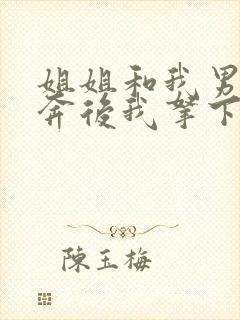 姐姐和我男
奔後我拿下
陳玉梅